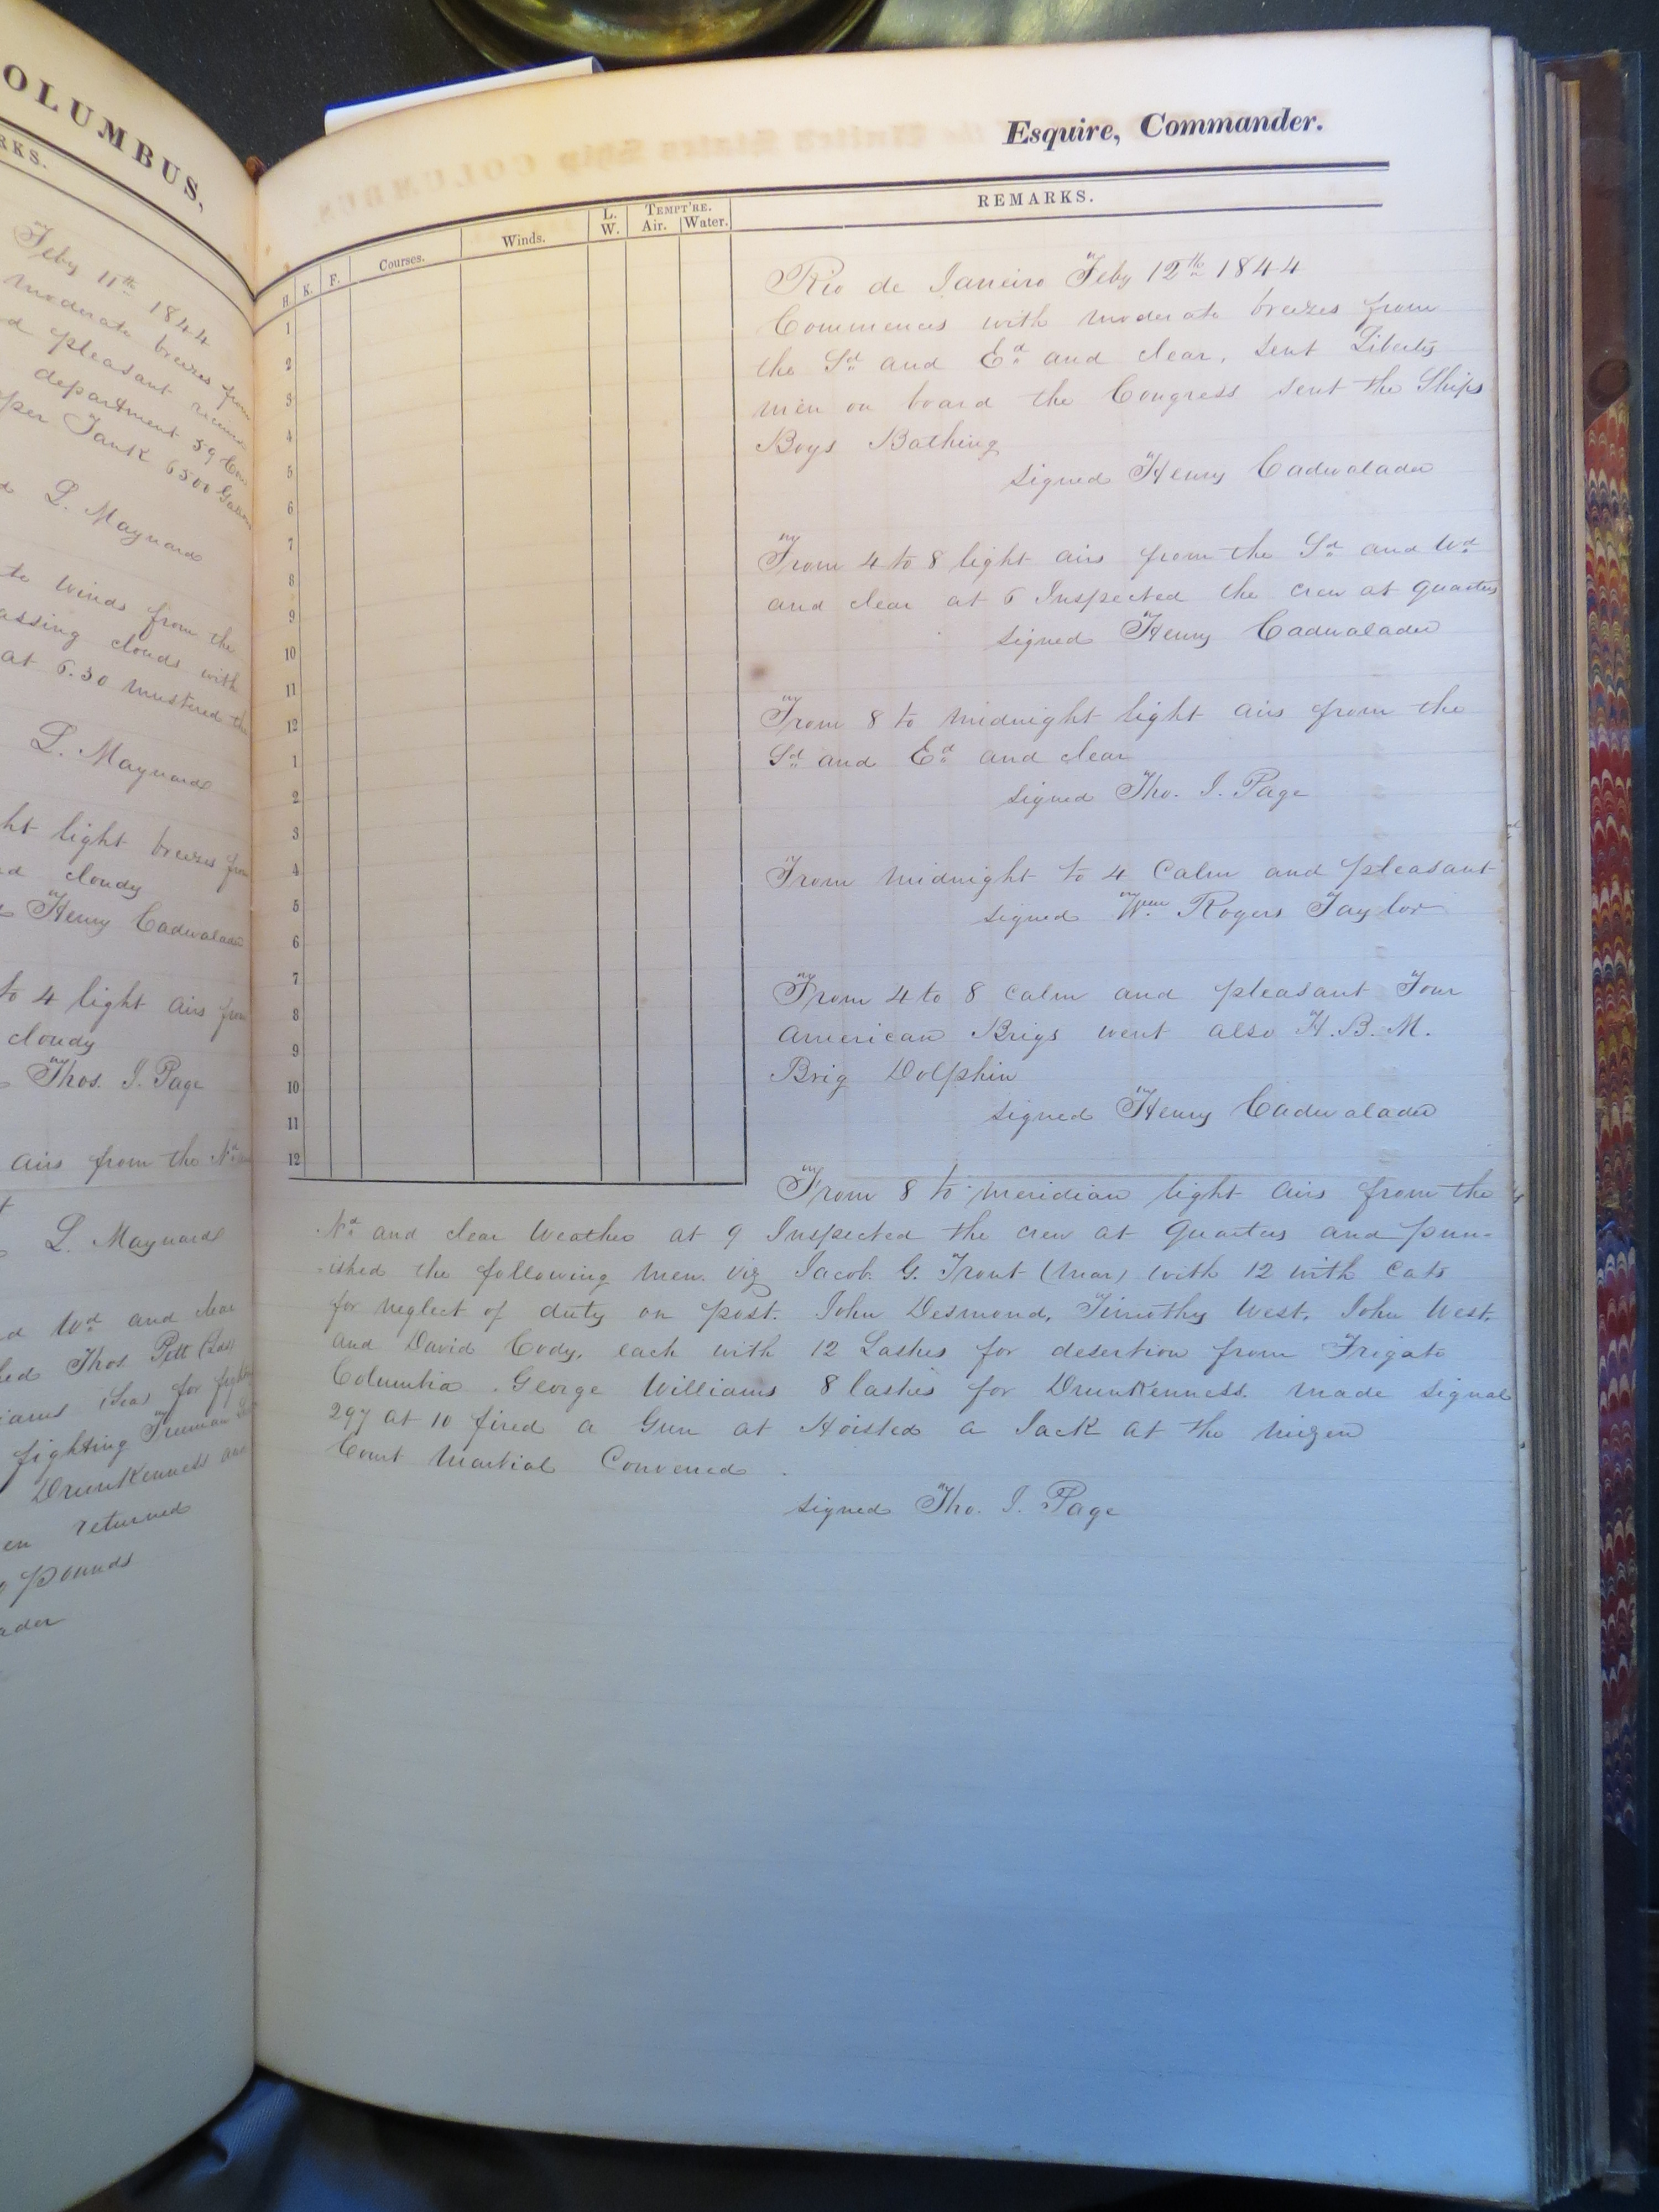 OLUMBUS,
RKS.
Feby 11th 1844
moderate breezes from
d pleasant received
department 59
per Tank 6500 Gallons
L. Maynard
te winds from the
assing clouds with
at 6.30 mustered the
L. Maynard
ht light breezes from
d cloudy
Henry Cadwalader
to 4 light airs from
cloudy
Thos. J. Page
airs from the Nd
L. Maynard
d Wd and clear
ed Thos Pett
iams (Sea) for fighting
fighting Truman
Drunkenness and
en returned
pounds
ader
Esquire, Commander.
H. K. F. Courses. Winds. L. W. TEMPT'RE. Air. Water. REMARKS.
1
2
3
4
5
6
7
8
9
10
11
12
1
2
3
4
5
6
7
8
9
10
11
12
Rio de Janeiro Feby 12th 1844
Commences with moderate breezes from
the Sd and Ed and clear, sent Liberty
men on board the Congress sent the Ships
Boys Bathing
signed Henry Cadwalader
From 4 to 8 light airs from the Sd and Wd
and clear at 6 Inspected the crew at quarters
signed Henry Cadwalader
From 8 to midnight light airs from the
Sd and Ed and clear
signed Tho. J. Page
From midnight to 4 Calm and pleasant
signed Wm Rogers Taylor
From 4 to 8 calm and pleasant Four
American Brigs went also H.B.M.
Brig Dolphin
signed Henry Cadwalader
From 8 to meridian light airs from the
Nd and clear weather at 9 Inspected the crew at quarters and pun-
-ished the following men. viz Jacob. G. Trout (Mar) with 12 with cats
for neglect of duty on post. John Desmond, Timothy West, John West,
and David Cody, each with 12 Lashes for desertion from Frigate
Columbia. George Williams 8 lashes for Drunkenness. made signal
297 at 10 fired a Gun at Hoisted a Jack at the mizen
Court Martial Convened.
signed Tho. J. Page